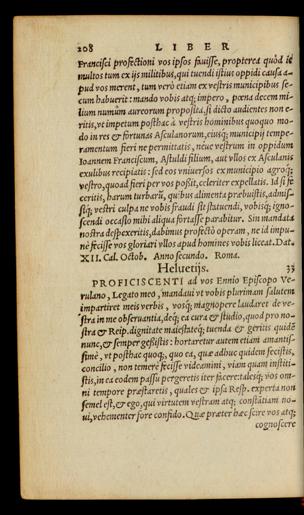 208 LIBER
Francisci profectioni vos ipsos fauisse, propterea quòd ié
multos tum ex ijs militibus, qui tuendi istius oppidi causa a-
pud vos merent, tum verò etiam ex vestris municipibus se-
cum habuerit: mando vobis atq; impero, pœna decem mi-
lium numûm aureorum proposita, si dicto audientes non e-
ritis, ve impetum posthac à vestris hominibus quoquo mo-
do in res & fortunas Asculanorum, eiusq; municipij tempe-
ramentum fieri ne permittatis, neue vestrûm in oppidum
Ioannem Franciscum, Astuldi filium, aut vllos ex Asculanis
exulibus recipiatis: sed eos vniuersos ex municipio agroq;
vestro, quoad fieri per vos possit, celeriter expellatis. Id si fe
ceritis, harum turbarũ, quibus alimenta præbuistis, admis-
siq; vestri culpa ne vobis fraudi sit statuendi, vobisq; igno-
scendi occasio mihi aliqua fortasse parabitur. Sin mandata
nostra despexeritis, dabimus profectò operam, ne id impu-
nè fecisse vos gloriari vllos apud homines vobis liceat. Dat.
XII. Cal. Octob. Anno secundo. Roma.
Heluetijs. 33
PROFICISCENTI ad vos Ennio Episcopo Ve-
rulano, Legato meo, mandaui vt vobis plurimam salutem
impartiret meis verbis, vosq; magnopere laudaret de ve-
stra in me obseruantia, deq; ea cura & studio, quod pro no-
stra & Reip. dignitate maiestateq; tuenda & geritis quidẽ
nunc, & semper gessistis: hortaretur autem etiam amantis-
simè, vt posthac quoq;, quo ea, quæ adhuc quidem fecistis,
concilio, non temerè fecisse videamini, viam quam institi-
stis, in ea eodem passu pergeretis iter facere: talesq; vos om-
ni tempore præstaretis, quales & ipsa Resp. experta non
semel est, & ego, qui virtutem vestram atq; constãtiam no-
ui, vehementer fore confido. Quæ præter hæc scire vos atq;
cognoscere